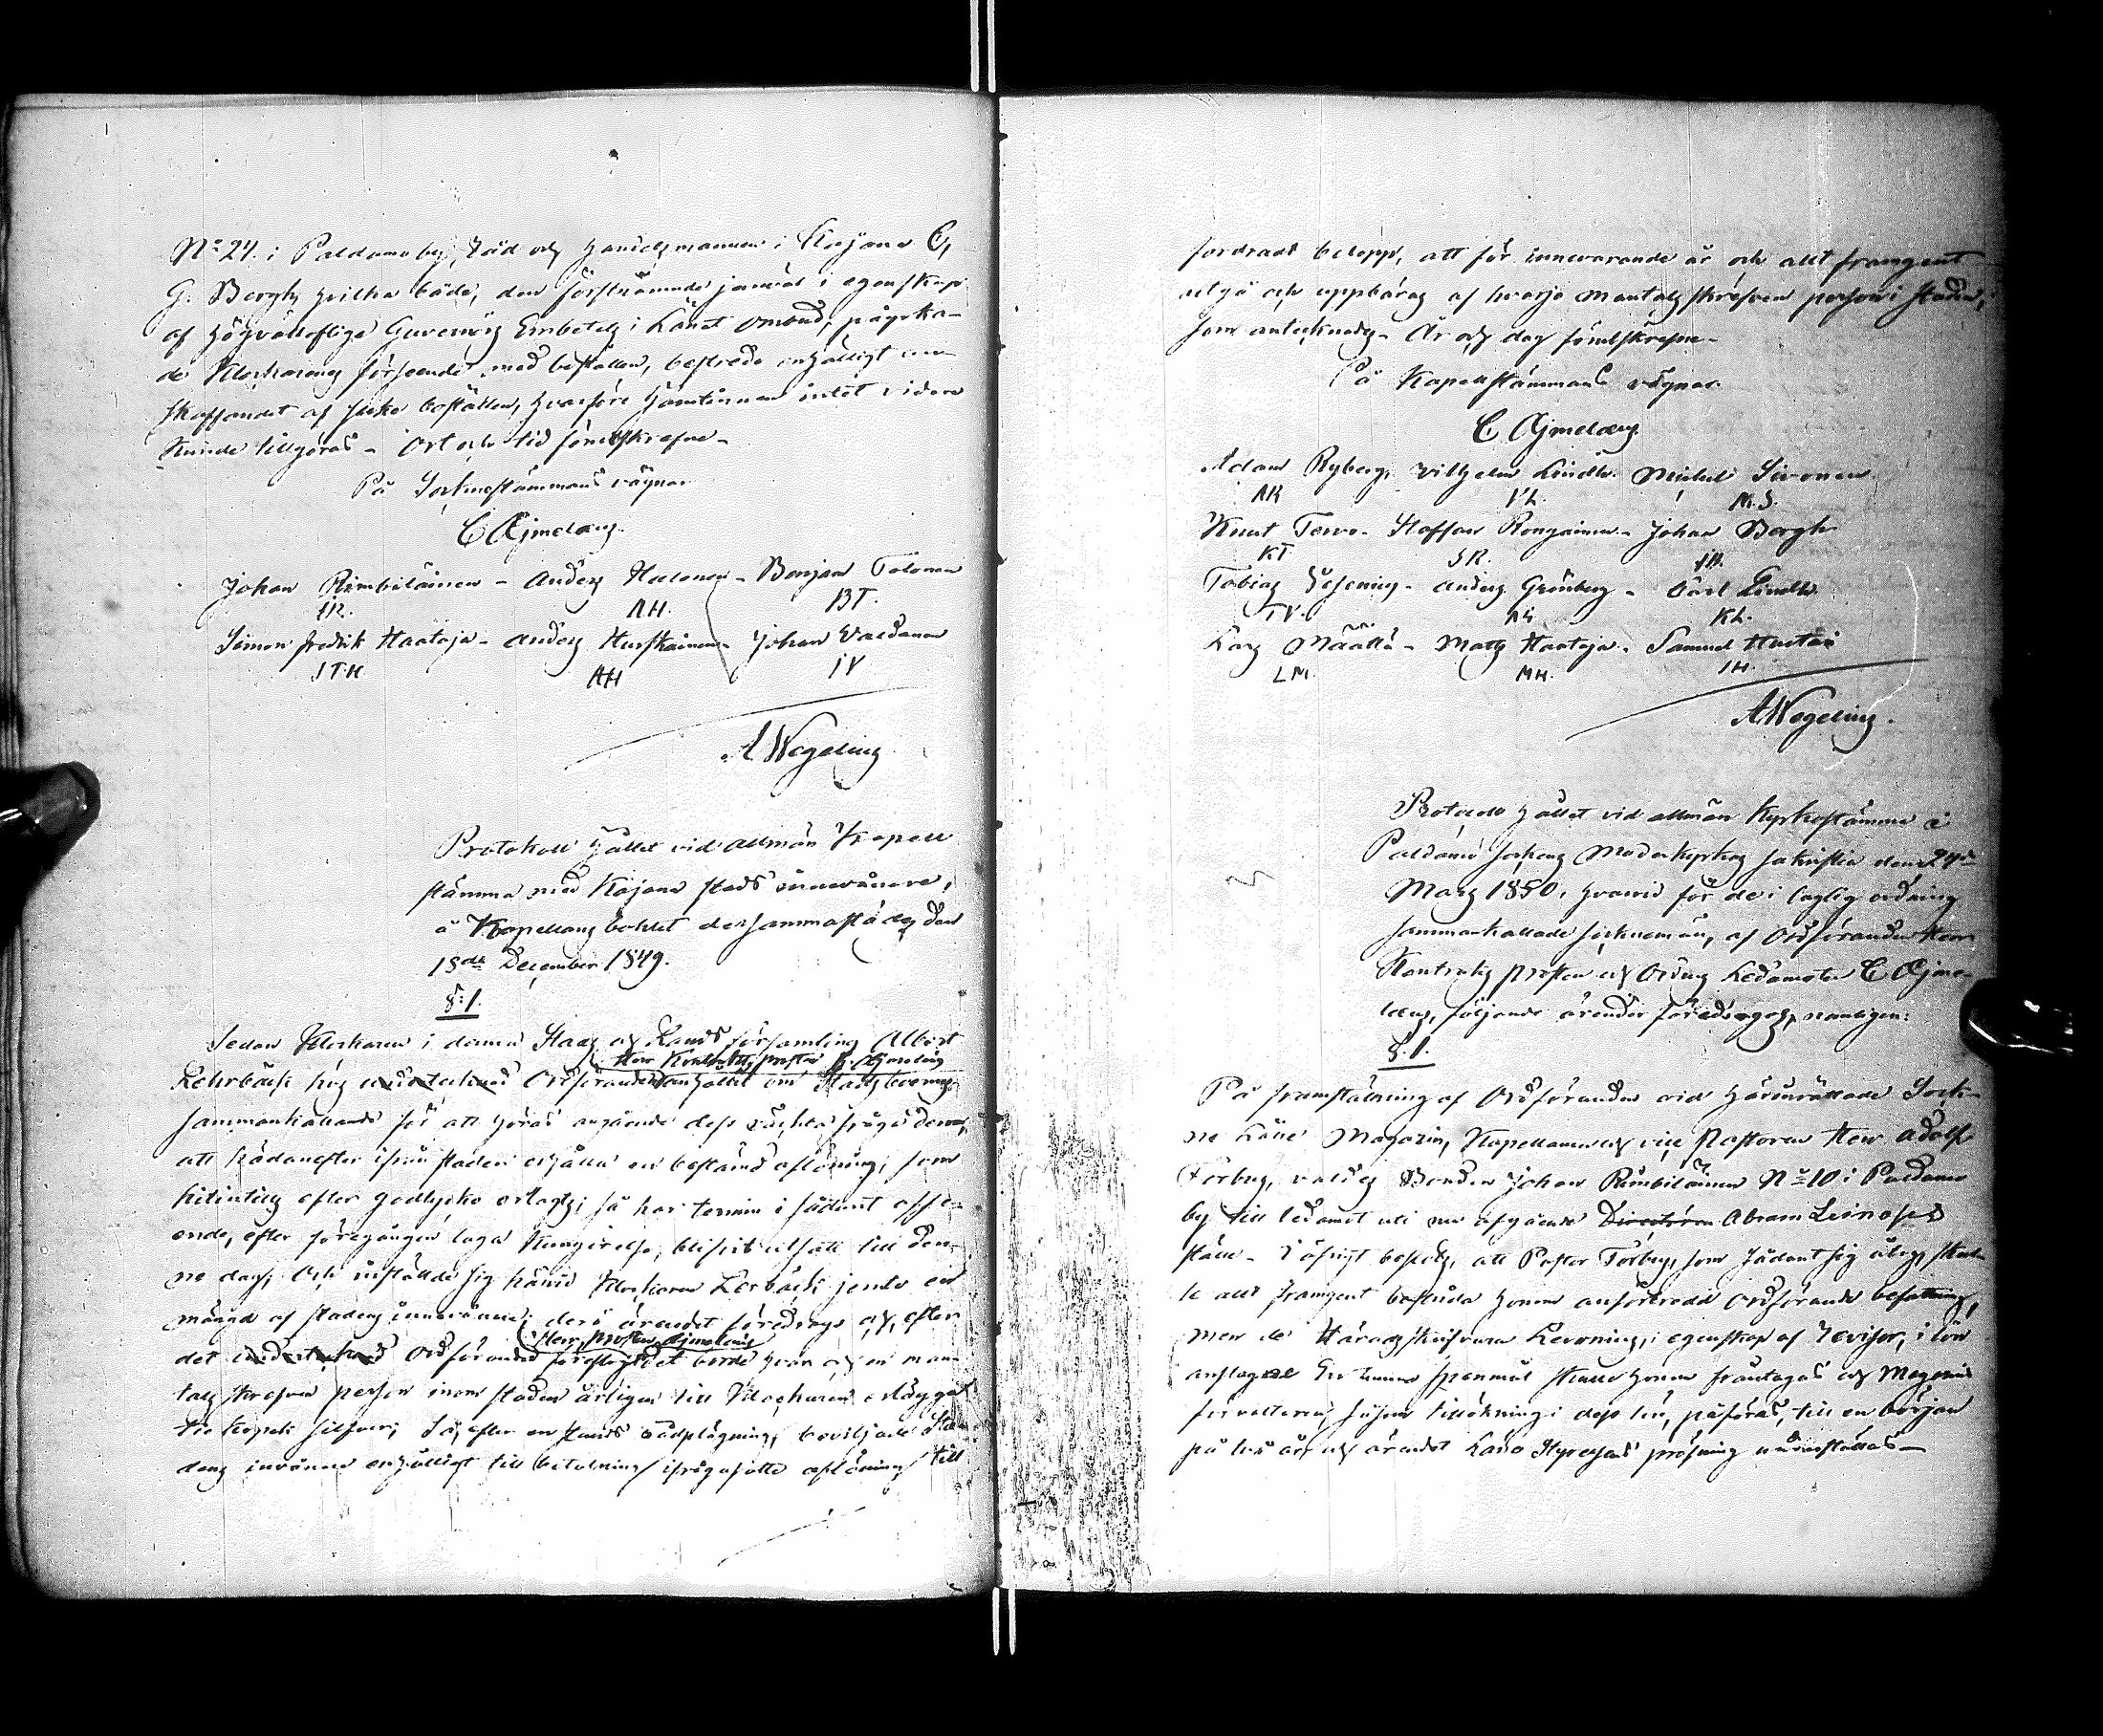 No 24. i Paldamo by, Råd och Handelsmannen i Kajana C,
G. Bergh, hvilka både, den förstnämnde jemväl i egenskap
af Högvälloflige Guvernörs Embetets i Länet Ombud, påyrka-
de Klockarens förseende med boställen, bestredo enhälligt an-
skaffandet af slike boställen, hvarföre härtinnan intet vidare
kunde tillgöras - Ort och tid förutskrefne -
På Sockenstämmans vägnar
C Ajmelæus.
Johan Rimbiläinen - Anders Halonen - Benjam Tolonen
JR. AH. BT.
Simon Fredrik Haataja - Anders Hurskainen - Johan Valdanen
SFH AH JV
A Wegelius
Protokoll hållet vid allmän Kapell
stämma med Kajana stads innevånare,
å Kapellans bohlet dersammastädes den
18de December 1849.
§: 1.
Sedan Klockaren i denna Stads och Lands församling Albert
Herr Kontrakts prosten C. Ajmelæus
Lehrbäck hos undertecknad Ordföranden anhållit om Stadsboernes
sammankallande för att höras angående dess väckta fråga derom,
att hädanefter ifrån staden erhålla en bestämd aflöning, som
hitintills efter godtycke erlagts; så har termin i sådant afse-
ende, efter föregången laga kungörelse, blifvit utsatt till den-
ne dag; Och inställde sig härvid Klockaren Lerbäck jemte en
mängd af stadens innevånare; derå ärendet föredrogs och, efter
Herr Prosten Ajmelæus
det undertecknad Ordförande föreslagit det borde hvar och en man-
tals skrefven person inom staden årligen till Klockaren erlägga
tio kopek silfver; Så, efter en stunds rådplägning, beviljade Sta-
dens invånare enhälligt till betalning ifrågasatte aflöning till
fordradt belopp, att för innevarande år och allt framgent
utgå och uppbäras af hvarje mantals skrefven person i staden,
som antecknades - År och dag förutskrefne -
På Kapellstämmans vägnar
C Ajmelæus.
Adam Ryberg, Vilhelm Lindh. Michel Sivonen.
AR VL. M.S.
Knut Tervo - Staffan Rongainen - Johan Bergh
KT SR. JB.
Tobias Vesenius - Anders Grönberg - Carl Lindh.
TV. AG KL.
Lars Määttä - Mats Haataja - Samuel Hurtar
LM. MH. SH.
A Wegelius.
Protocoll hållet vid allmän Kyrkostämma i
Paldamo Sockens Moderkyrkas sakristia den 24de
Mars 1850, hvarvid för de i laglig ordning
sammankallade sockenmän, af Ordföranden Herr
Kontrakts prosten och Ordens Ledamoten C Ajme-
læus, följande ärender föredrogos, nämligen:
§. 1.
På framställning af Ordföranden vid härinrättade Sock-
ne Låne Magazin, Kapellanen och vice Pastoren Herr Adolf
Forbus, valdes Bonden Johan Rimbiläinen No 10 i Paldamo
by till ledamot uti nu afgående Directören Abram Leinos
ställe - I öfrigt beslöts, att Pastor Forbus, som sådant sig åtog, skul-
le allt framgent bestrida honom anförtrodd Ordförande befattning,
men de Häradsskrifvaren Levoning, i egenskap af Revisor, i lön
anslagne En tunna spanmål skulle honom fråntagas och Magasins
förvaltaren, såsom tillökning i dess lön, påföras, till en början
på tre år och ärendet Låne Styrelsens pröfning underställas -